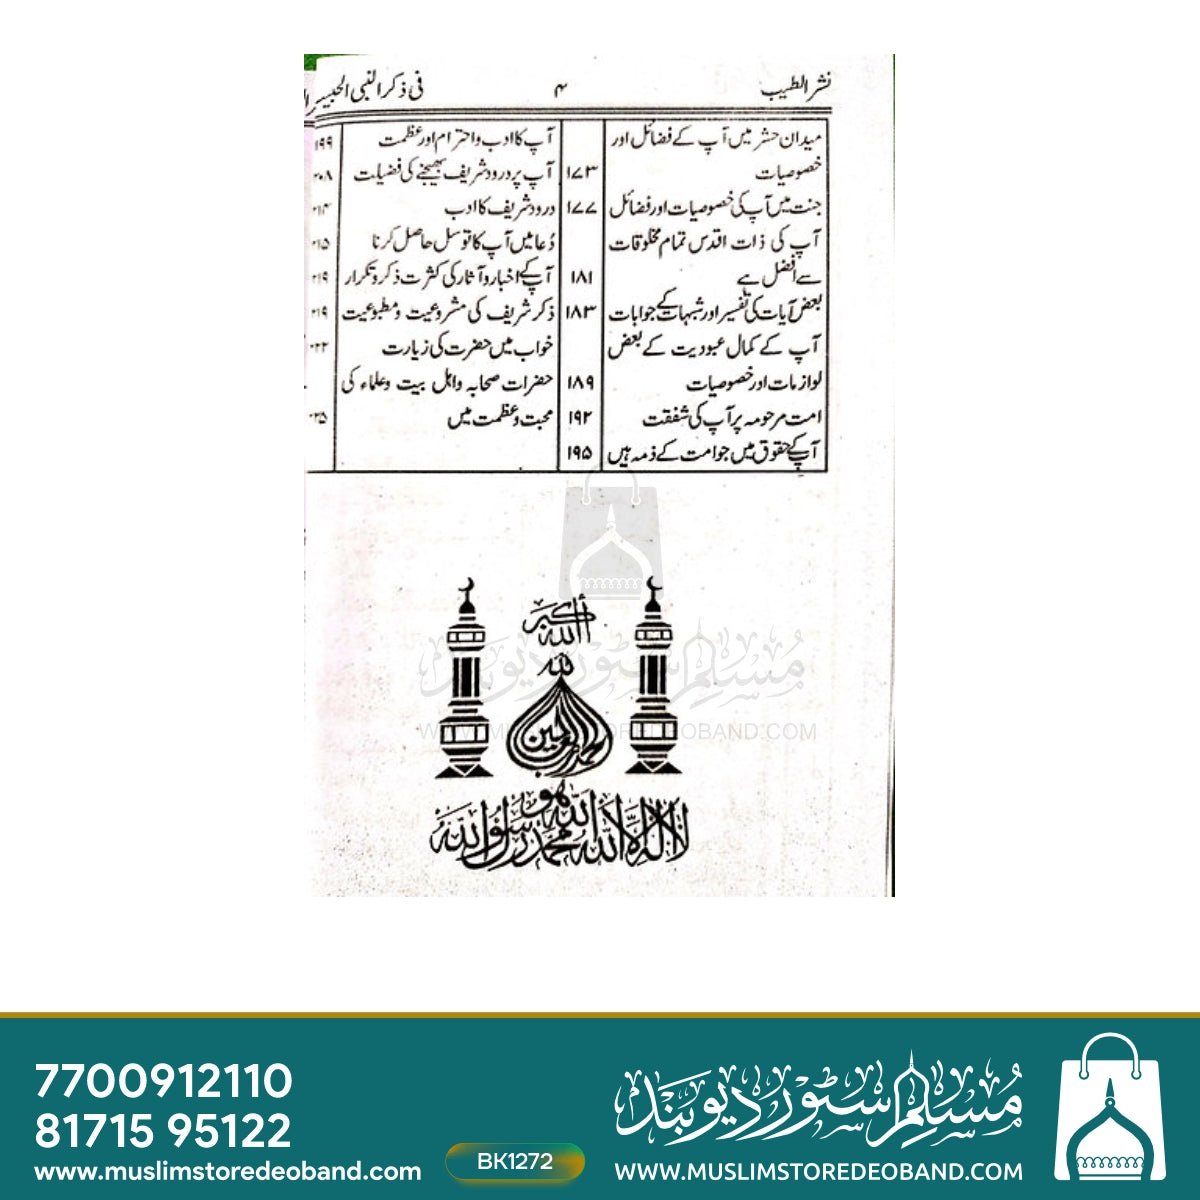 نشر الطیب
۴
فی ذکر النبی الحبیب
میدان حشر میں آپ کے فضائل اور
خصوصیات ۱۷۳
جنت میں آپ کی خصوصیات اور فضائل ۱۷۷
آپ کی ذات اقدس تمام مخلوقات
سے افضل ہے ۱۸۱
بعض آیات کی تفسیر اور شبہات کے جوابات ۱۸۳
آپ کے کمال عبودیت کے بعض
لوازمات اور خصوصیات ۱۸۹
امت مرحومہ پر آپ کی شفقت ۱۹۲
آپ کے حقوق میں جو امت کے ذمہ ہیں ۱۹۵
آپ کا ادب و احترام اور عظمت ۱۹۹
آپ پر درود شریف بھیجنے کی فضیلت ۲۰۸
درود شریف کا ادب ۲۱۴
دُعا میں آپ کا توسل حاصل کرنا ۲۱۵
آپ کے اخبار و آثار کی کثرت ذکر و تکرار ۲۱۹
ذکر شریف کی مشروعیت و مطبوعیت ۲۱۹
خواب میں حضرت کی زیارت
حضرات صحابہ و اہل بیت و علماء کی
محبت و عظمت میں
الله أكبر
الحمد لله رب العالمين
لا إله إلا الله هو محمد رسول الله
مسلم سٹور دیوبند
WWW.MUSLIMSTOREDEOBAND.COM
7700912110
81715 95122
www.muslimstoredeoband.com
BK1272
مسلم سٹور دیوبند
WWW.MUSLIMSTOREDEOBAND.COM